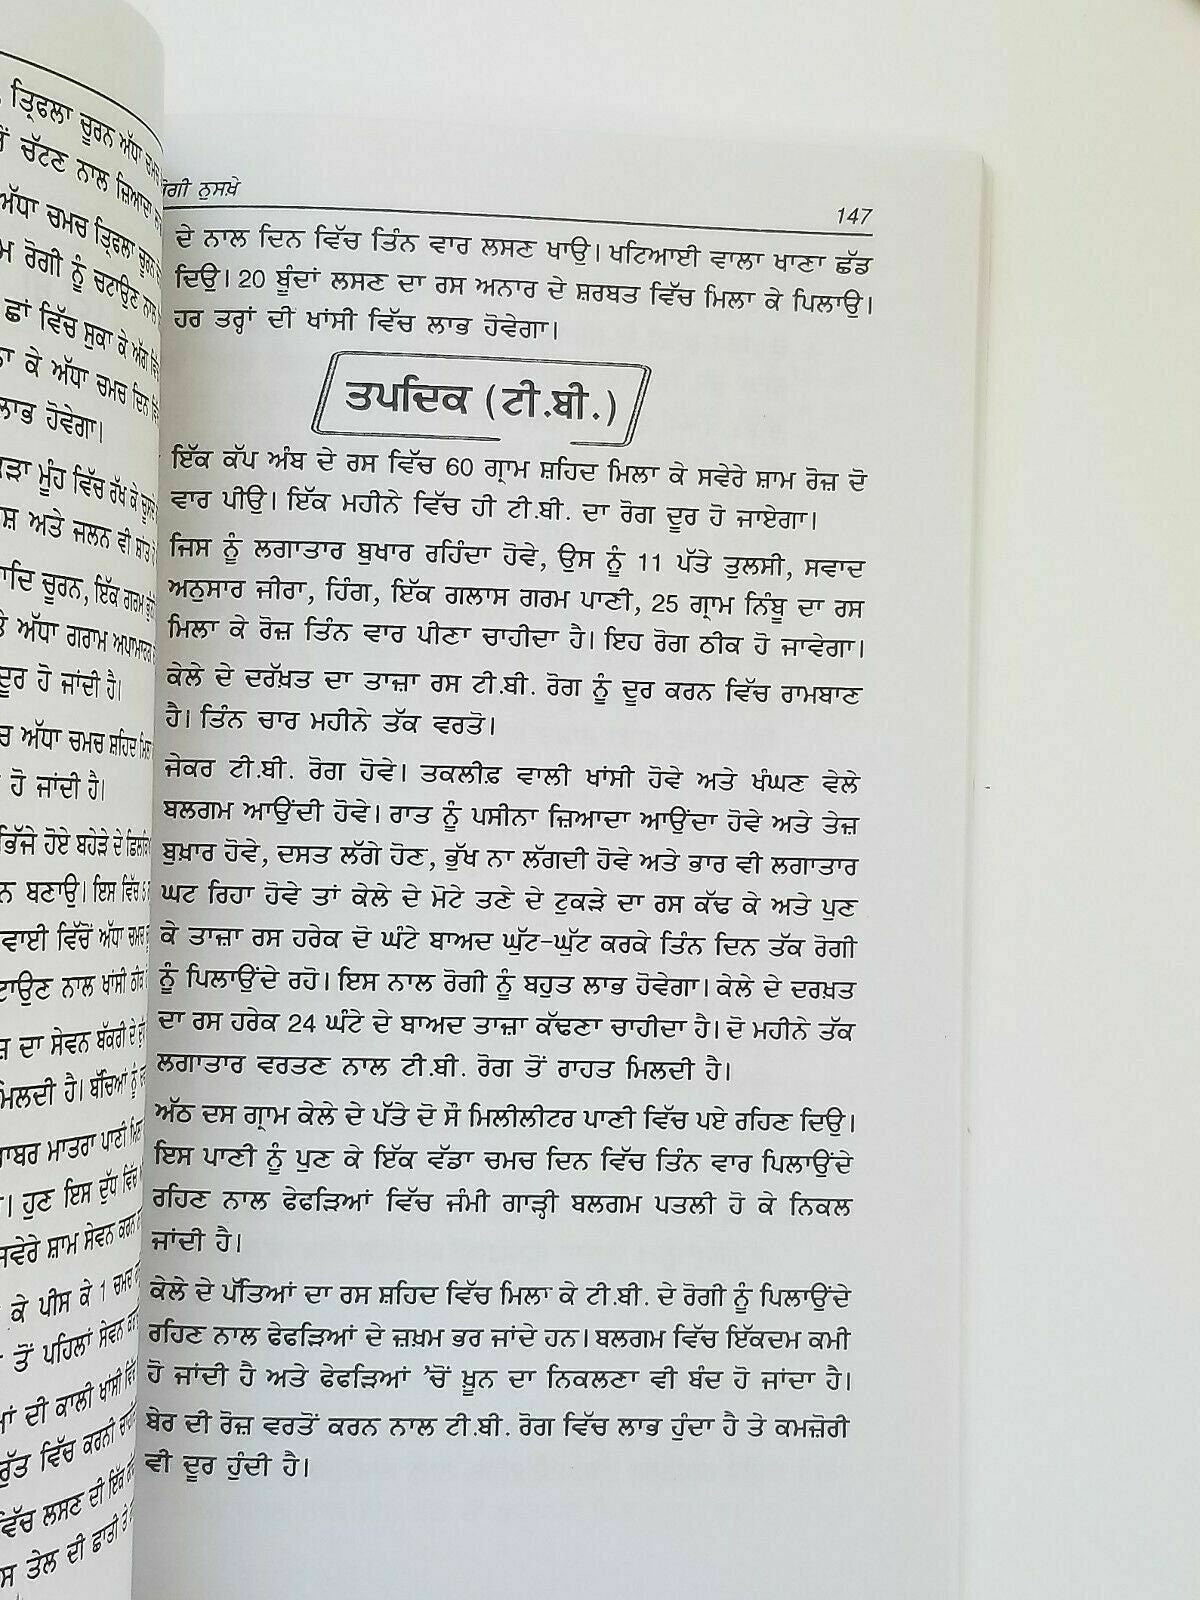 ਤ੍ਰਿਫਲਾ ਚੂਰਨ ਅੱਧਾ ਚਮਚ
ਚੱਟਣ ਨਾਲ ਜ਼ਿਆਦਾ
ਅੱਧਾ ਚਮਚ ਤ੍ਰਿਫਲਾ ਚੂਰਨ
ਰੋਗੀ ਨੂੰ ਚਟਾਉਣ ਨਾਲ
ਛਾਂ ਵਿੱਚ ਸੁਕਾ ਕੇ ਅੱਗ
ਕੇ ਅੱਧਾ ਚਮਚ ਦਿਨ
ਲਾਭ ਹੋਵੇਗਾ।
ਮੂੰਹ ਵਿੱਚ ਰੱਖ ਕੇ ਚੂਸਣ
ਅਤੇ ਜਲਨ ਵੀ ਸ਼ਾਂਤ
ਚੂਰਨ, ਇੱਕ ਗਰਮ
ਅੱਧਾ ਗਰਾਮ ਅਪਾਮਾਰਗ
ਦੂਰ ਹੋ ਜਾਂਦੀ ਹੈ।
ਅੱਧਾ ਚਮਚ ਸ਼ਹਿਦ ਮਿਲਾ
ਹੋ ਜਾਂਦੀ ਹੈ।
ਭਿੱਜੇ ਹੋਏ ਬਹੇੜੇ ਦੇ
ਬਣਾਉ। ਇਸ ਵਿੱਚ 5
ਵਿੱਚੋਂ ਅੱਧਾ ਚਮਚ
ਨਾਲ ਖਾਂਸੀ ਠੀਕ
ਦਾ ਸੇਵਨ ਬੱਕਰੀ ਦੇ
ਮਿਲਦੀ ਹੈ। ਬੱਚਿਆਂ ਨੂੰ
ਮਾਤਰਾ ਪਾਣੀ
ਹੁਣ ਇਸ ਦੁੱਧ ਵਿੱਚ
ਸਵੇਰੇ ਸ਼ਾਮ ਸੇਵਨ ਕਰਨ
ਕੇ ਪੀਸ ਕੇ 1 ਚਮਚ
ਤੋਂ ਪਹਿਲਾਂ ਸੇਵਨ
ਦੀ ਕਾਲੀ ਖਾਂਸੀ ਵਿੱਚ
ਰੁੱਤ ਵਿੱਚ ਕਰਨੀ
ਵਿੱਚ ਲਸਣ ਦੀ ਇੱਕ
ਤੇਲ ਦੀ ਛਾਤੀ ਤੇ
ਨੁਸਖ਼ੇ 147
ਦੇ ਨਾਲ ਦਿਨ ਵਿੱਚ ਤਿੰਨ ਵਾਰ ਲਸਣ ਖਾਉ। ਖਟਿਆਈ ਵਾਲਾ ਖਾਣਾ ਛੱਡ
ਦਿਉ। 20 ਬੂੰਦਾਂ ਲਸਣ ਦਾ ਰਸ ਅਨਾਰ ਦੇ ਸ਼ਰਬਤ ਵਿੱਚ ਮਿਲਾ ਕੇ ਪਿਲਾਉ।
ਹਰ ਤਰ੍ਹਾਂ ਦੀ ਖਾਂਸੀ ਵਿੱਚ ਲਾਭ ਹੋਵੇਗਾ।
ਤਪਦਿਕ (ਟੀ.ਬੀ.)
ਇੱਕ ਕੱਪ ਅੰਬ ਦੇ ਰਸ ਵਿੱਚ 60 ਗ੍ਰਾਮ ਸ਼ਹਿਦ ਮਿਲਾ ਕੇ ਸਵੇਰੇ ਸ਼ਾਮ ਰੋਜ਼ ਦੋ
ਵਾਰ ਪੀਉ। ਇੱਕ ਮਹੀਨੇ ਵਿੱਚ ਹੀ ਟੀ.ਬੀ. ਦਾ ਰੋਗ ਦੂਰ ਹੋ ਜਾਏਗਾ।
ਜਿਸ ਨੂੰ ਲਗਾਤਾਰ ਬੁਖਾਰ ਰਹਿੰਦਾ ਹੋਵੇ, ਉਸ ਨੂੰ 11 ਪੱਤੇ ਤੁਲਸੀ, ਸਵਾਦ
ਅਨੁਸਾਰ ਜੀਰਾ, ਹਿੰਗ, ਇੱਕ ਗਲਾਸ ਗਰਮ ਪਾਣੀ, 25 ਗ੍ਰਾਮ ਨਿੰਬੂ ਦਾ ਰਸ
ਮਿਲਾ ਕੇ ਰੋਜ਼ ਤਿੰਨ ਵਾਰ ਪੀਣਾ ਚਾਹੀਦਾ ਹੈ। ਇਹ ਰੋਗ ਠੀਕ ਹੋ ਜਾਵੇਗਾ।
ਕੇਲੇ ਦੇ ਦਰੱਖ਼ਤ ਦਾ ਤਾਜ਼ਾ ਰਸ ਟੀ.ਬੀ. ਰੋਗ ਨੂੰ ਦੂਰ ਕਰਨ ਵਿੱਚ ਰਾਮਬਾਣ
ਹੈ। ਤਿੰਨ ਚਾਰ ਮਹੀਨੇ ਤੱਕ ਵਰਤੋ।
ਜੇਕਰ ਟੀ.ਬੀ. ਰੋਗ ਹੋਵੇ। ਤਕਲੀਫ਼ ਵਾਲੀ ਖਾਂਸੀ ਹੋਵੇ ਅਤੇ ਖੰਘਣ ਵੇਲੇ
ਬਲਗਮ ਆਉਂਦੀ ਹੋਵੇ। ਰਾਤ ਨੂੰ ਪਸੀਨਾ ਜ਼ਿਆਦਾ ਆਉਂਦਾ ਹੋਵੇ ਅਤੇ ਤੇਜ਼
ਬੁਖ਼ਾਰ ਹੋਵੇ, ਦਸਤ ਲੱਗੇ ਹੋਣ, ਭੁੱਖ ਨਾ ਲੱਗਦੀ ਹੋਵੇ ਅਤੇ ਭਾਰ ਵੀ ਲਗਾਤਾਰ
ਘਟ ਰਿਹਾ ਹੋਵੇ ਤਾਂ ਕੇਲੇ ਦੇ ਮੋਟੇ ਤਣੇ ਦੇ ਟੁਕੜੇ ਦਾ ਰਸ ਕੱਢ ਕੇ ਅਤੇ ਪੁਣ
ਕੇ ਤਾਜ਼ਾ ਰਸ ਹਰੇਕ ਦੋ ਘੰਟੇ ਬਾਅਦ ਘੁੱਟ-ਘੁੱਟ ਕਰਕੇ ਤਿੰਨ ਦਿਨ ਤੱਕ ਰੋਗੀ
ਨੂੰ ਪਿਲਾਉਂਦੇ ਰਹੋ। ਇਸ ਨਾਲ ਰੋਗੀ ਨੂੰ ਬਹੁਤ ਲਾਭ ਹੋਵੇਗਾ। ਕੇਲੇ ਦੇ ਦਰਖ਼ਤ
ਦਾ ਰਸ ਹਰੇਕ 24 ਘੰਟੇ ਦੇ ਬਾਅਦ ਤਾਜ਼ਾ ਕੱਢਣਾ ਚਾਹੀਦਾ ਹੈ। ਦੋ ਮਹੀਨੇ ਤੱਕ
ਲਗਾਤਾਰ ਵਰਤਣ ਨਾਲ ਟੀ.ਬੀ. ਰੋਗ ਤੋਂ ਰਾਹਤ ਮਿਲਦੀ ਹੈ।
ਅੱਠ ਦਸ ਗ੍ਰਾਮ ਕੇਲੇ ਦੇ ਪੱਤੇ ਦੋ ਸੌ ਮਿਲੀਲੀਟਰ ਪਾਣੀ ਵਿੱਚ ਪਏ ਰਹਿਣ ਦਿਉ।
ਇਸ ਪਾਣੀ ਨੂੰ ਪੁਣ ਕੇ ਇੱਕ ਵੱਡਾ ਚਮਚ ਦਿਨ ਵਿੱਚ ਤਿੰਨ ਵਾਰ ਪਿਲਾਉਂਦੇ
ਰਹਿਣ ਨਾਲ ਫੇਫੜਿਆਂ ਵਿੱਚ ਜੰਮੀ ਗਾੜ੍ਹੀ ਬਲਗਮ ਪਤਲੀ ਹੋ ਕੇ ਨਿਕਲ
ਜਾਂਦੀ ਹੈ।
ਕੇਲੇ ਦੇ ਪੱਤਿਆਂ ਦਾ ਰਸ ਸ਼ਹਿਦ ਵਿੱਚ ਮਿਲਾ ਕੇ ਟੀ.ਬੀ. ਦੇ ਰੋਗੀ ਨੂੰ ਪਿਲਾਉਂਦੇ
ਰਹਿਣ ਨਾਲ ਫੇਫੜਿਆਂ ਦੇ ਜ਼ਖ਼ਮ ਭਰ ਜਾਂਦੇ ਹਨ। ਬਲਗਮ ਵਿੱਚ ਇੱਕਦਮ ਕਮੀ
ਹੋ ਜਾਂਦੀ ਹੈ ਅਤੇ ਫੇਫੜਿਆਂ 'ਚੋਂ ਖ਼ੂਨ ਦਾ ਨਿਕਲਣਾ ਵੀ ਬੰਦ ਹੋ ਜਾਂਦਾ ਹੈ।
ਬੇਰ ਦੀ ਰੋਜ਼ ਵਰਤੋਂ ਕਰਨ ਨਾਲ ਟੀ.ਬੀ. ਰੋਗ ਵਿੱਚ ਲਾਭ ਹੁੰਦਾ ਹੈ ਤੇ ਕਮਜ਼ੋਰੀ
ਵੀ ਦੂਰ ਹੁੰਦੀ ਹੈ।